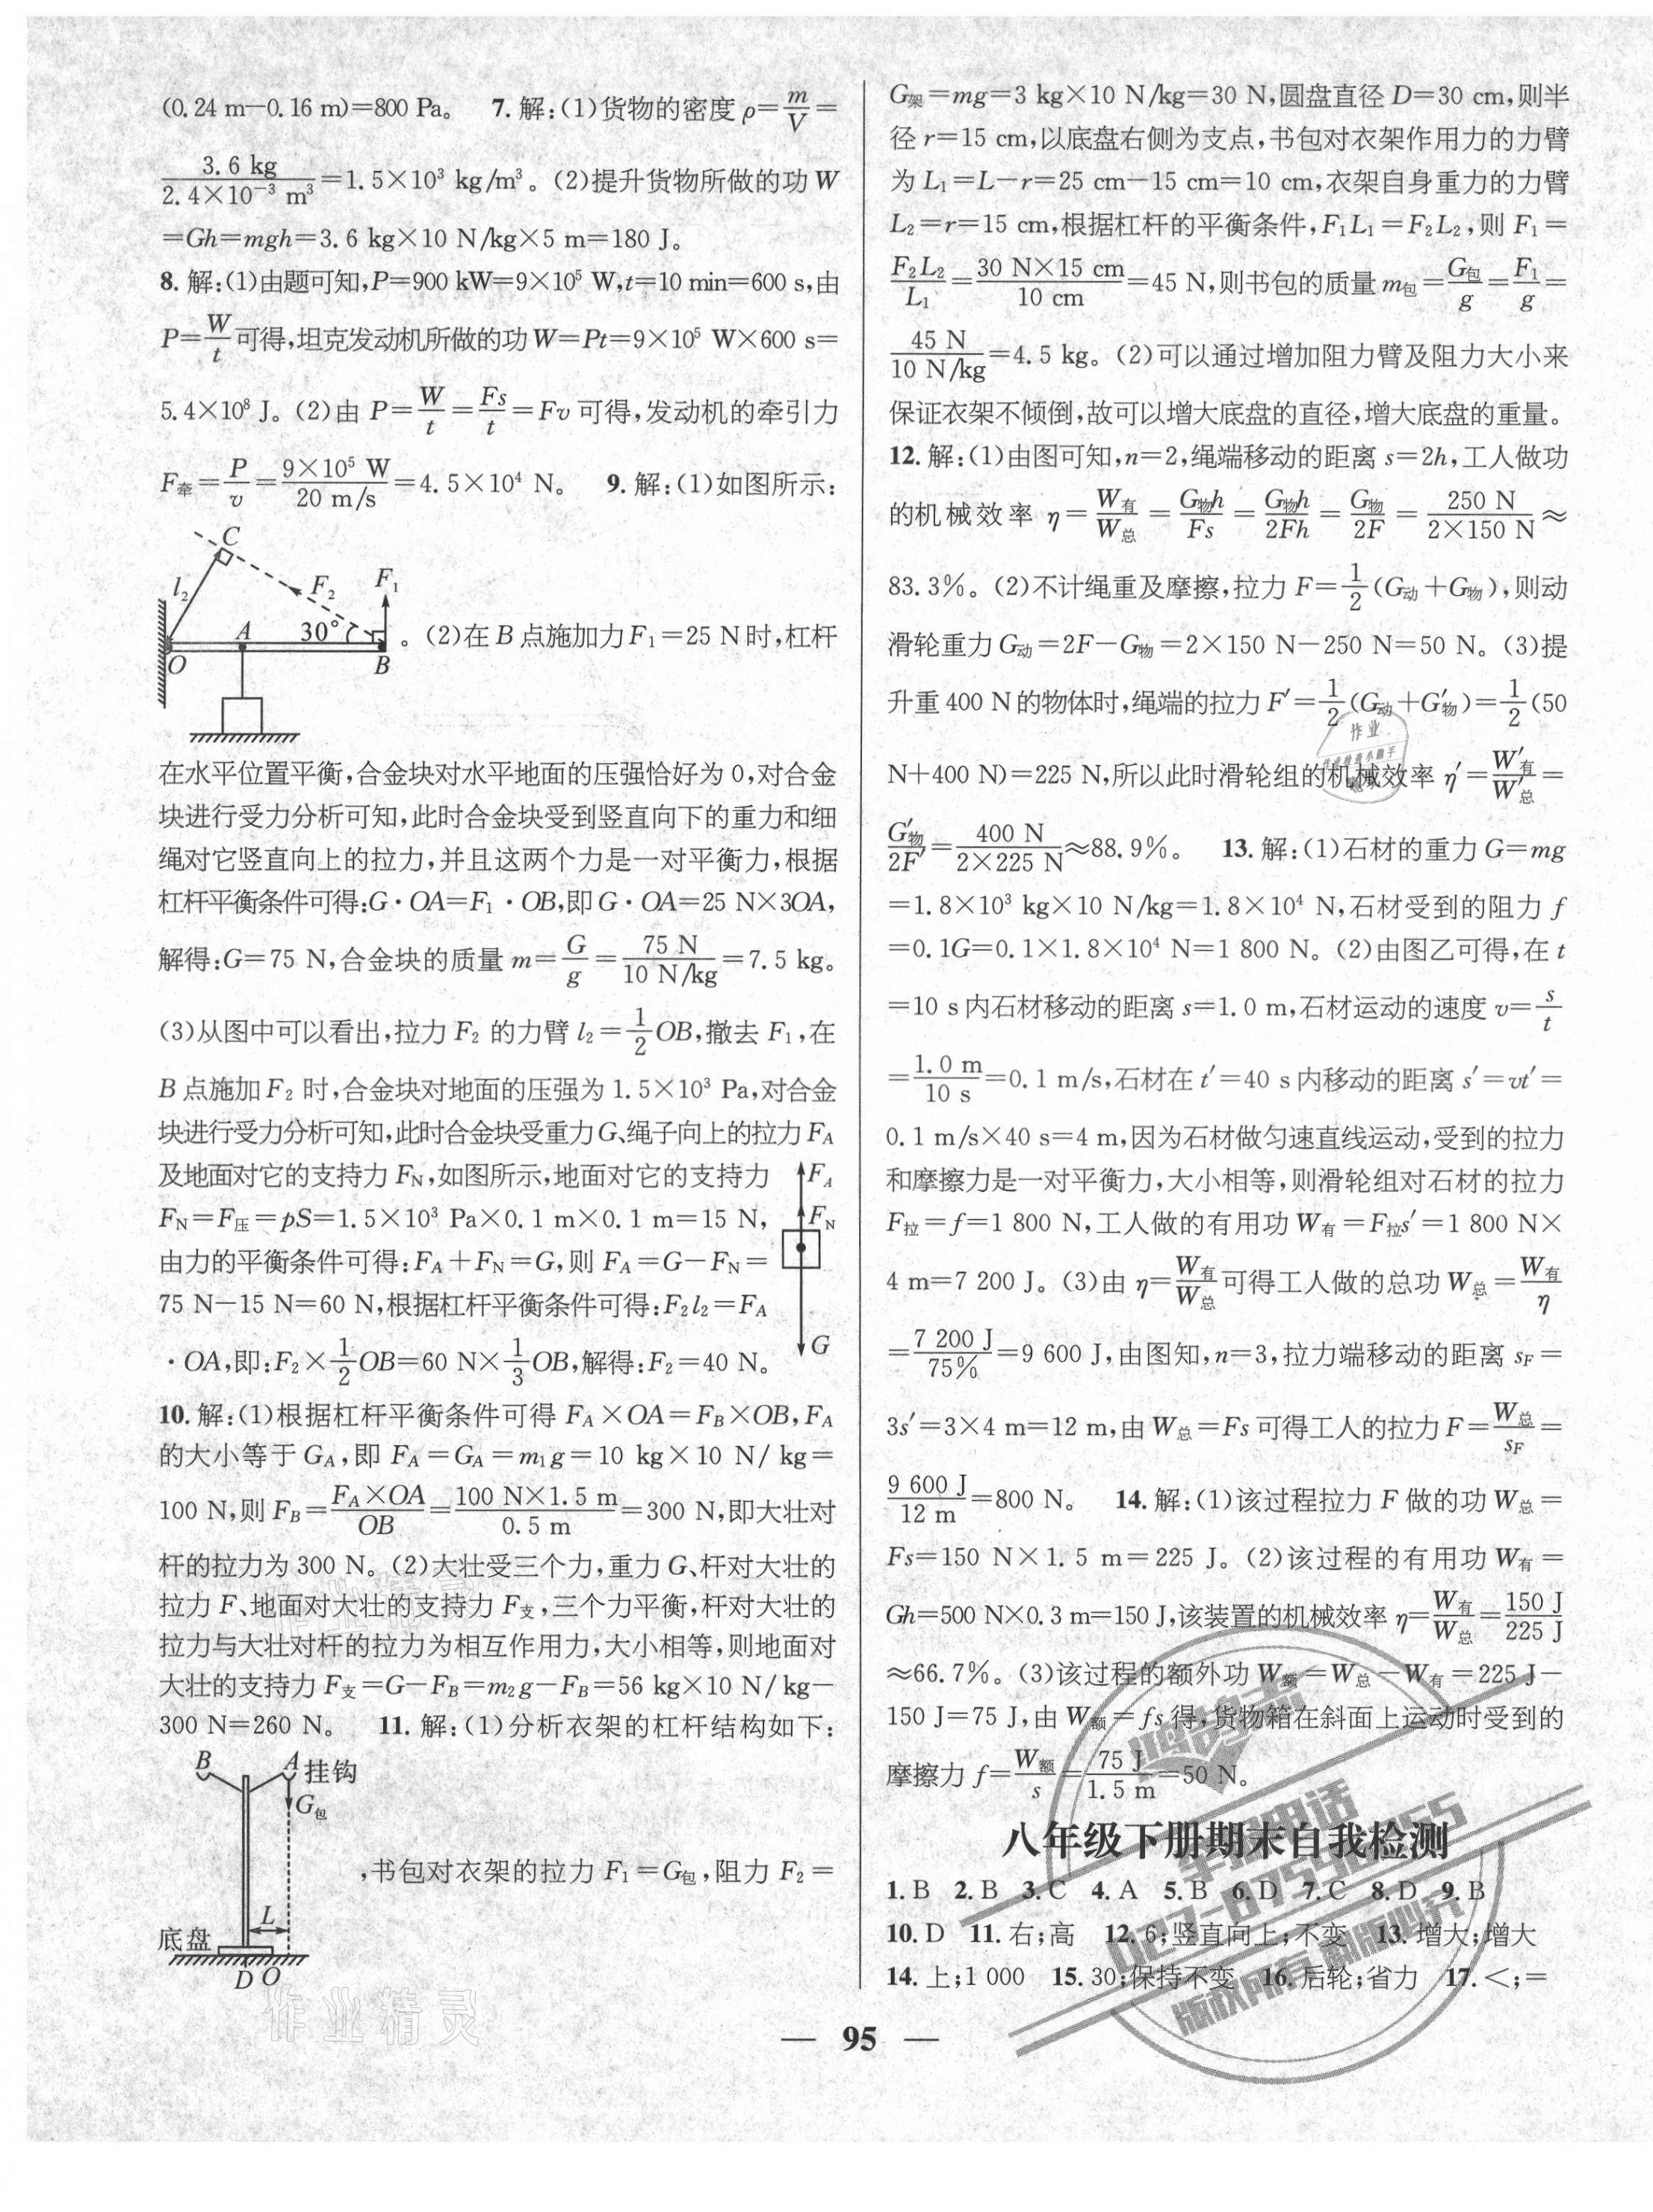 (0.24 m−0.16 m)=800 Pa。 7. 解:(1)货物的密度 ρ=m/V=
3.6 kg/(2.4×10⁻³ m³)=1.5×10³ kg/m³。(2)提升货物所做的功 W
=Gh=mgh=3.6 kg×10 N/kg×5 m=180 J。
8. 解:(1)由题可知,P=900 kW=9×10⁵ W,t=10 min=600 s,由
P=W/t可得,坦克发动机所做的功 W=Pt=9×10⁵ W×600 s=
5.4×10⁸ J。(2)由 P=W/t=Fs/t=Fv 可得,发动机的牵引力
F牵=P/v=(9×10⁵ W)/(20 m/s)=4.5×10⁴ N。 9. 解:(1)如图所示:
C
l₂ F₂ F₁
A 30°
O B
。(2)在 B 点施加力 F₁=25 N时,杠杆
在水平位置平衡,合金块对水平地面的压强恰好为 0,对合金
块进行受力分析可知,此时合金块受到竖直向下的重力和细
绳对它竖直向上的拉力,并且这两个力是一对平衡力,根据
杠杆平衡条件可得:G·OA=F₁·OB,即 G·OA=25 N×3OA,
解得:G=75 N,合金块的质量 m=G/g=75 N/(10 N/kg)=7.5 kg。
(3)从图中可以看出,拉力 F₂ 的力臂 l₂=1/2OB,撤去 F₁,在
B 点施加 F₂ 时,合金块对地面的压强为 1.5×10³ Pa,对合金
块进行受力分析可知,此时合金块受重力 G、绳子向上的拉力 F_A
及地面对它的支持力 F_N,如图所示,地面对它的支持力
F_N=F压=pS=1.5×10³ Pa×0.1 m×0.1 m=15 N,
由力的平衡条件可得:F_A+F_N=G,则 F_A=G−F_N=
75 N−15 N=60 N,根据杠杆平衡条件可得:F₂l₂=F_A
·OA,即:F₂×1/2OB=60 N×1/3OB,解得:F₂=40 N。
F_A
F_N
G
10. 解:(1)根据杠杆平衡条件可得 F_A×OA=F_B×OB,F_A
的大小等于 G_A,即 F_A=G_A=m₁g=10 kg×10 N/kg=
100 N,则 F_B=(F_A×OA)/OB=(100 N×1.5 m)/(0.5 m)=300 N,即大壮对
杆的拉力为 300 N。(2)大壮受三个力,重力 G、杆对大壮的
拉力 F、地面对大壮的支持力 F支,三个力平衡,杆对大壮的
拉力与大壮对杆的拉力为相互作用力,大小相等,则地面对
大壮的支持力 F支=G−F_B=m₂g−F_B=56 kg×10 N/kg−
300 N=260 N。 11. 解:(1)分析衣架的杠杆结构如下:
B A 挂钩
G包
L
底盘
D O
,书包对衣架的拉力 F₁=G包,阻力 F₂=
G架=mg=3 kg×10 N/kg=30 N,圆盘直径 D=30 cm,则半
径 r=15 cm,以底盘右侧为支点,书包对衣架作用力的力臂
为 L₁=L−r=25 cm−15 cm=10 cm,衣架自身重力的力臂
L₂=r=15 cm,根据杠杆的平衡条件,F₁L₁=F₂L₂,则 F₁=
F₂L₂/L₁=(30 N×15 cm)/(10 cm)=45 N,则书包的质量 m包=G包/g=F₁/g=
45 N/(10 N/kg)=4.5 kg。(2)可以通过增加阻力臂及阻力大小来
保证衣架不倾倒,故可以增大底盘的直径,增大底盘的重量。
12. 解:(1)由图可知,n=2,绳端移动的距离 s=2h,工人做功
的机械效率 η=W有/W总=G物h/Fs=G物h/2Fh=G物/2F=250 N/(2×150 N)≈
83.3%。(2)不计绳重及摩擦,拉力 F=1/2(G动+G物),则动
滑轮重力 G动=2F−G物=2×150 N−250 N=50 N。(3)提
升重 400 N的物体时,绳端的拉力 F′=1/2(G动+G′物)=1/2(50
N+400 N)=225 N,所以此时滑轮组的机械效率 η′=W′有/W′总=
G′物/2F′=400 N/(2×225 N)≈88.9%。 13. 解:(1)石材的重力 G=mg
=1.8×10³ kg×10 N/kg=1.8×10⁴ N,石材受到的阻力 f
=0.1G=0.1×1.8×10⁴ N=1 800 N。(2)由图乙可得,在 t
=10 s内石材移动的距离 s=1.0 m,石材运动的速度 v=s/t
=1.0 m/10 s=0.1 m/s,石材在 t′=40 s内移动的距离 s′=vt′=
0.1 m/s×40 s=4 m,因为石材做匀速直线运动,受到的拉力
和摩擦力是一对平衡力,大小相等,则滑轮组对石材的拉力
F拉=f=1 800 N,工人做的有用功 W有=F拉s′=1 800 N×
4 m=7 200 J。(3)由 η=W有/W总可得工人做的总功 W总=W有/η
=7 200 J/75%=9 600 J,由图知,n=3,拉力端移动的距离 s_F=
3s′=3×4 m=12 m,由 W总=Fs 可得工人的拉力 F=W总/s_F=
9 600 J/12 m=800 N。 14. 解:(1)该过程拉力 F 做的功 W总=
Fs=150 N×1.5 m=225 J。(2)该过程的有用功 W有=
Gh=500 N×0.3 m=150 J,该装置的机械效率 η=W有/W总=150 J/225 J
≈66.7%。(3)该过程的额外功 W额=W总−W有=225 J−
150 J=75 J,由 W额=fs 得,货物箱在斜面上运动时受到的
摩擦力 f=W额/s=75 J/1.5 m=50 N。
八年级下册期末自我检测
1. B 2. B 3. C 4. A 5. B 6. D 7. C 8. D 9. B
10. D 11. 右;高 12. 6;竖直向上;不变 13. 增大;增大
14. 上;1 000 15. 30;保持不变 16. 后轮;省力 17. <;=
— 95 —
作业精灵
作业精灵